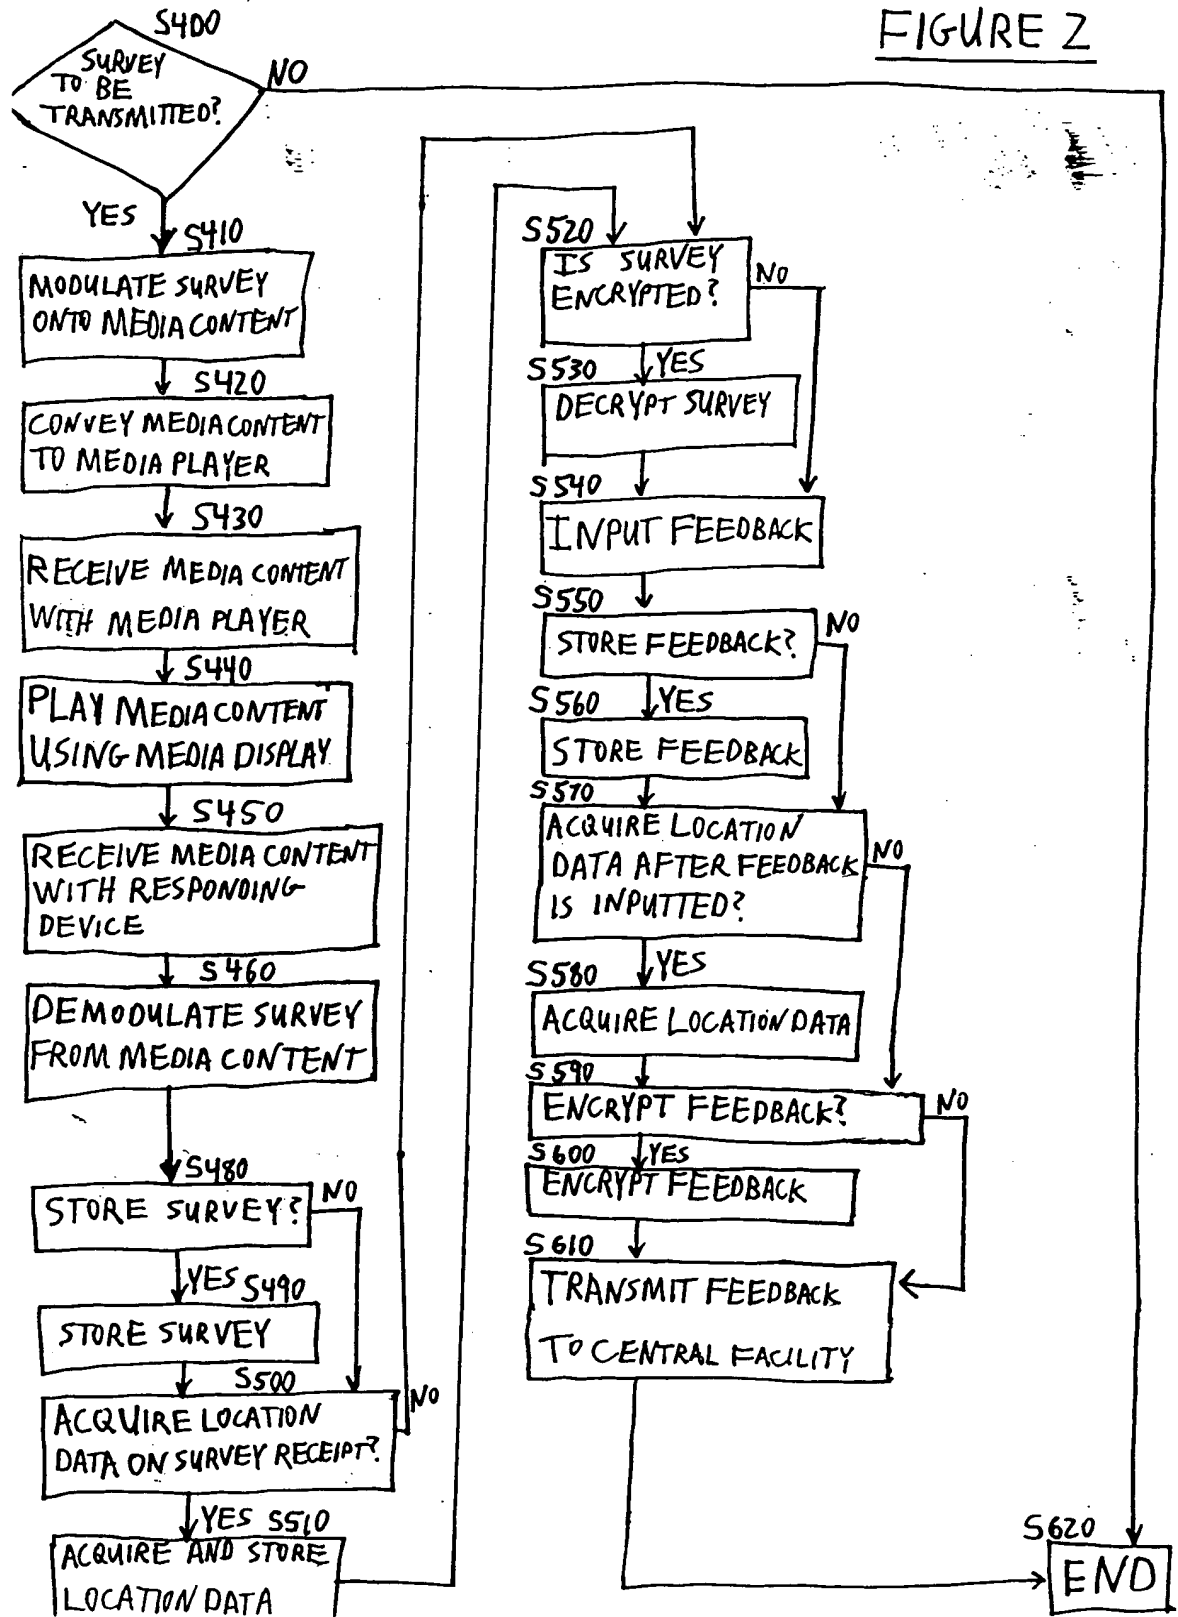 FIGURE 2
S400
SURVEY
TO BE
TRANSMITTED?
NO
YES
S410
MODULATE SURVEY
ONTO MEDIA CONTENT
S420
CONVEY MEDIA CONTENT
TO MEDIA PLAYER
S430
RECEIVE MEDIA CONTENT
WITH MEDIA PLAYER
S440
PLAY MEDIA CONTENT
USING MEDIA DISPLAY
S450
RECEIVE MEDIA CONTENT
WITH RESPONDING
DEVICE
S460
DEMODULATE SURVEY
FROM MEDIA CONTENT
S480
STORE SURVEY?
NO
YES
S490
STORE SURVEY
S500
ACQUIRE LOCATION
DATA ON SURVEY RECEIPT?
NO
YES
S510
ACQUIRE AND STORE
LOCATION DATA
S520
IS SURVEY
ENCRYPTED?
NO
YES
S530
DECRYPT SURVEY
S540
INPUT FEEDBACK
S550
STORE FEEDBACK?
NO
YES
S560
STORE FEEDBACK
S570
ACQUIRE LOCATION
DATA AFTER FEEDBACK
IS INPUTTED?
NO
YES
S580
ACQUIRE LOCATION DATA
S590
ENCRYPT FEEDBACK?
NO
YES
S600
ENCRYPT FEEDBACK
S610
TRANSMIT FEEDBACK
TO CENTRAL FACILITY
S620
END